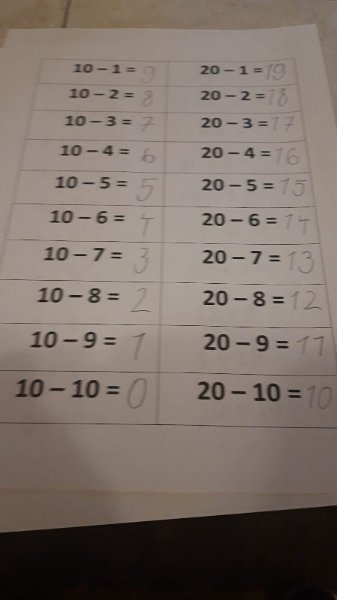 10 – 1 = 9 20 – 1 = 19
10 – 2 = 8 20 – 2 = 18
10 – 3 = 7 20 – 3 = 17
10 – 4 = 6 20 – 4 = 16
10 – 5 = 5 20 – 5 = 15
10 – 6 = 4 20 – 6 = 14
10 – 7 = 3 20 – 7 = 13
10 – 8 = 2 20 – 8 = 12
10 – 9 = 1 20 – 9 = 11
10 – 10 = 0 20 – 10 = 10